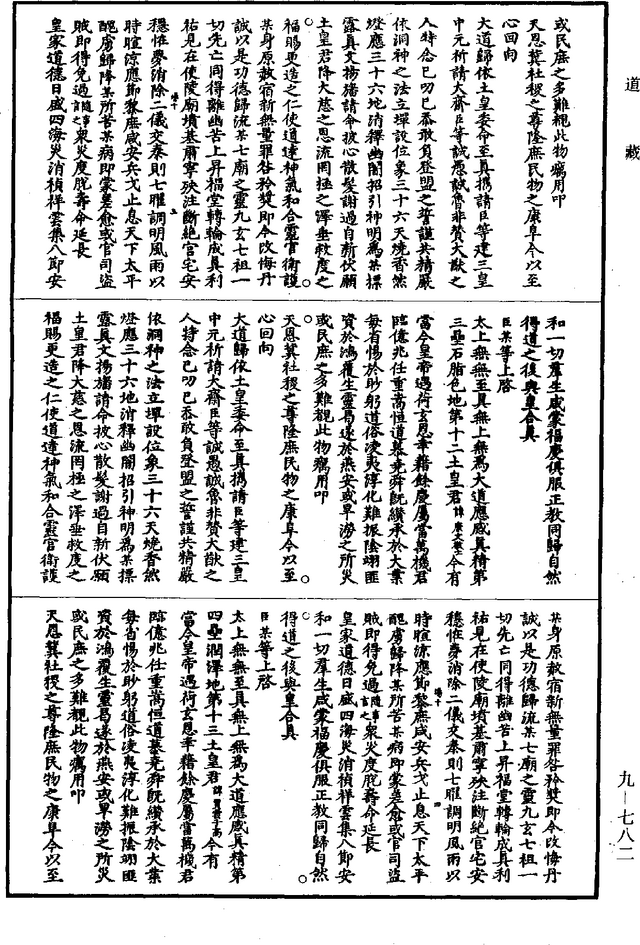 道藏
或民庶之多難覩此物癘用叩
天恩冀社稷之尊隆庶民物之康阜今以至
心回向
大道歸依土皇委命至真攜請臣等建三皇
中元祈請大齋臣等誠愚誠魯非贊大猷之
人特念已叨已忝敢負登盟之誓謹共精嚴
依洞神之法立壇設位象三十六天燒香然
燈應三十六地消釋幽闇招引神明為某標
露真文揚旛請命披心散髮謝過自新伏願
土皇君降大慈之恩流罔極之澤垂救度之
福賜更造之仁使道達神氣和合靈官衛護
某身原赦宿新無量罪咎矜獎即令改悔丹
誠以是功德歸流某七廟之靈九玄七祖一
切先亡同得離幽苦上昇福堂轉輪成真利
祐見在使陵廟墳基肅寧殃注斷絕官宅安
穩恠夢消除二儀交泰則七曜調明風雨以
時暄涼應節黎庶咸安兵戈止息天下太平
醜虜歸降某所苦某病即蒙差愈或官司盜
賊即得免過隨事言之衆災度脫壽命延長
皇家道德日盛四海災消禎祥雲集八節安
和一切羣生咸蒙福慶俱服正教同歸自然
得道之後與皇合真
臣某等上啓
太上無無至真無上無為大道應感真精第
三壘石脂色地第十二土皇君諱今有
當今皇帝遇荷玄恩幸藉餘慶屬當萬機君
臨億兆任重嵩恒道慕堯舜旣纘承於大業
每省惕於眇躬道俗凌夷淳化難振陰翊匪
資於鴻覆生靈曷遂於燕安或旱澇之所災
或民庶之多難覩此物癘用叩
天恩冀社稷之尊隆庶民物之康阜今以至
心回向
大道歸依土皇委命至真攜請臣等建三皇
中元祈請大齋臣等誠愚誠魯非贊大猷之
人特念已叨已忝敢負登盟之誓謹共精嚴
依洞神之法立壇設位象三十六天燒香然
燈應三十六地消釋幽闇招引神明為某標
露真文揚旛請命披心散髮謝過自新伏願
土皇君降大慈之恩流罔極之澤垂救度之
福賜更造之仁使道達神氣和合靈官衛護
某身原赦宿新無量罪咎矜獎即令改悔丹
誠以是功德歸流某七廟之靈九玄七祖一
切先亡同得離幽苦上昇福堂轉輪成真利
祐見在使陵廟墳基肅寧殃注斷絕官宅安
穩恠夢消除二儀交泰則七曜調明風雨以
時暄涼應節黎庶咸安兵戈止息天下太平
醜虜歸降某所苦某病即蒙差愈或官司盜
賊即得免過隨事言之衆災度脫壽命延長
皇家道德日盛四海災消禎祥雲集八節安
和一切羣生咸蒙福慶俱服正教同歸自然
得道之後與皇合真
臣某等上啓
太上無無至真無上無為大道應感真精第
四壘潤澤地第十三土皇君諱今有
當今皇帝遇荷玄恩幸藉餘慶屬當萬機君
臨億兆任重嵩恒道慕堯舜旣纘承於大業
每省惕於眇躬道俗凌夷淳化難振陰翊匪
資於鴻覆生靈曷遂於燕安或旱澇之所災
或民庶之多難覩此物癘用叩
天恩冀社稷之尊隆庶民物之康阜今以至
九—七八二